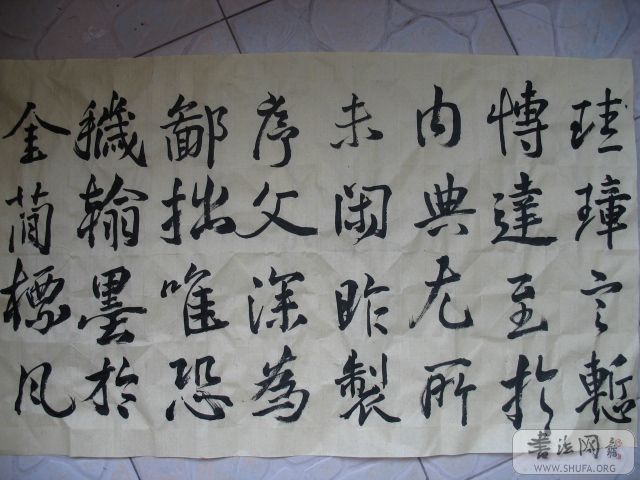 珪璋言慙
博達至於
内典尤所
未閑昨製
序文深為
鄙拙唯恐
穢翰墨於
金簡標瓦
書法网
WWW.SHUFA.ORG